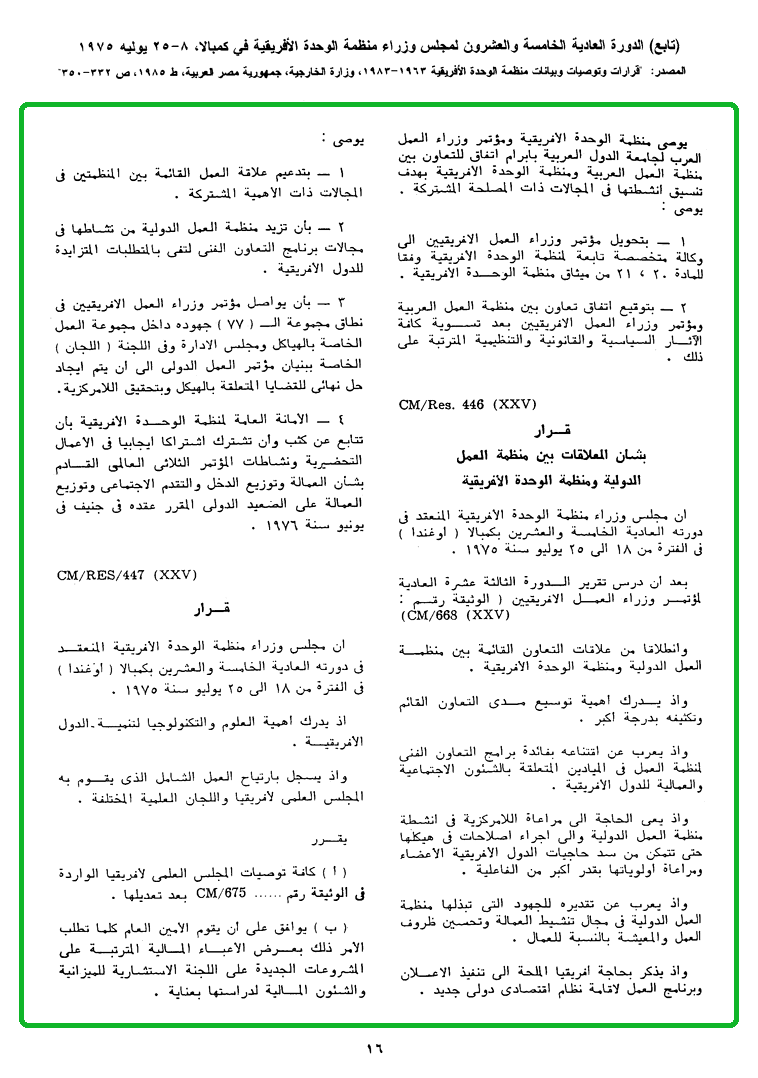 (تابع) الدورة العادية الخامسة والعشرون لمجلس وزراء منظمة الوحدة الأفريقية في كمبالا، ٨-٢٥ يوليه ١٩٧٥
المصدر: "قرارات وتوصيات وبيانات منظمة الوحدة الأفريقية ١٩٦٣-١٩٨٣، وزارة الخارجية، جمهورية مصر العربية، ط ١٩٨٥، ص ٣٣٢-٣٥٠"
يوصى منظمة الوحدة الافريقية ومؤتمر وزراء العمل
العرب لجامعة الدول العربية بابرام اتفاق للتعاون بين
منظمة العمل العربية ومنظمة الوحدة الافريقية بهدف
تنسيق انشطتها فى المجالات ذات المصلحة المشتركة .
يوصى :
١ — بتحويل مؤتمر وزراء العمل الافريقيين الى
وكالة متخصصة تابعة لمنظمة الوحدة الافريقية وفقا
للمادة ٢٠ ، ٢١ من ميثاق منظمة الوحـــدة الأفريقية .
٢ — بتوقيع اتفاق تعاون بين منظمة العمل العربية
ومؤتمر وزراء العمل الافريقيين بعد تســـوية كافة
الآثـــار السياسية والقانونية والتنظيمية المترتبة على
ذلك .
CM/Res. 446 (XXV)
قـــرار
بشان العلاقات بين منظمة العمل
الدولية ومنظمة الوحدة الافريقية
ان مجلس وزراء منظمة الوحدة الافريقية المنعقد فى
دورته العادية الخامسة والعشرين بكمبالا ( اوغندا )
فى الفترة من ١٨ الى ٢٥ يوليو سنة ١٩٧٥ .
بعد ان درس تقرير الـــدورة الثالثة عشرة العادية
لمؤتمر وزراء العمـــل الافريقيين ( الوثيقة رقـــم :
CM/668 (XXV))
وانطلاقا من علاقات التعاون القائمة بين منظمـــة
العمل الدولية ومنظمة الوحدة الافريقية .
واذ يـــدرك اهمية توسيع مـــدى التعاون القائم
وتكثيفه بدرجة اكبر .
واذ يعرب عن اقتناعه بفائدة برامج التعاون الفنى
لمنظمة العمل فى الميادين المتعلقة بالشئون الاجتماعية
والعمالية للدول الأفريقية .
واذ يعى الحاجة الى مراعاة اللامركزية فى انشطة
منظمة العمل الدولية والى اجراء اصلاحات فى هيكلها
حتى تتمكن من سد حاجيات الدول الافريقية الأعضاء
ومراعاة أولوياتها بقدر أكبر من الفاعلية .
واذ يعرب عن تقديره للجهود التى تبذلها منظمة
العمل الدولية فى مجال تنشيط العمالة وتحسين ظروف
العمل والمعيشة بالنسبة للعمال .
واذ يذكر بحاجة أفريقيا الملحة الى تنفيذ الاعـــلان
وبرنامج العمل لاقامة نظام اقتصادى دولى جديد .
يوصى :
١ — بتدعيم علاقة العمل القائمة بين المنظمتين فى
المجالات ذات الاهمية المشتركة .
٢ — بأن تزيد منظمة العمل الدولية من نشاطها فى
مجالات برنامج التعاون الفنى لتفى بالمتطلبات المتزايدة
للدول الأفريقية .
٣ — بأن يواصل مؤتمر وزراء العمل الافريقيين فى
نطاق مجموعة الـــ ( ٧٧ ) جهوده داخل مجموعة العمل
الخاصة بالهياكل ومجلس الادارة وفى اللجنة ( اللجان )
الخاصة ببنيان مؤتمر العمل الدولى الى ان يتم ايجاد
حل نهائى للقضايا المتعلقة بالهيكل وبتحقيق اللامركزية.
٤ — الأمانة العامة لمنظمة الوحـــدة الأفريقية بأن
تتابع عن كثب وان تشترك اشتراكا ايجابيا فى الاعمال
التحضيرية ونشاطات المؤتمر الثلاثى العالمى القـــادم
بشأن العمالة وتوزيع الدخل والتقدم الاجتماعى وتوزيع
العمالة على الصعيد الدولى المقرر عقده فى جنيف فى
يونيو سنة ١٩٧٦ .
CM/RES/447 (XXV)
قـــرار
ان مجلس وزراء منظمة الوحدة الأفريقية المنعقـــد
فى دورته العادية الخامسة والعشرين بكمبالا ( أوغندا )
فى الفترة من ١٨ الى ٢٥ يوليو سنة ١٩٧٥ .
اذ يدرك اهمية العلوم والتكنولوجيا لتنميـــة الدول
الافريقيـــة .
واذ يسجل بارتياح العمل الشامل الذى يقـــوم به
المجلس العلمى لأفريقيا واللجان العلمية المختلفة .
يقـــرر
( أ ) كافة توصيات المجلس العلمى لافريقيا الواردة
فى الوثيقة رقم ...... CM/675 بعد تعديلها .
( ب ) يوافق على أن يقوم الامين العام كلما تطلب
الامر ذلك بعـــرض الاعبـــاء المـــالية المترتبـــة على
المشروعات الجديدة على اللجنة الاستشارية للميزانية
والشئون المـــالية لدراستها بعناية .
١٦